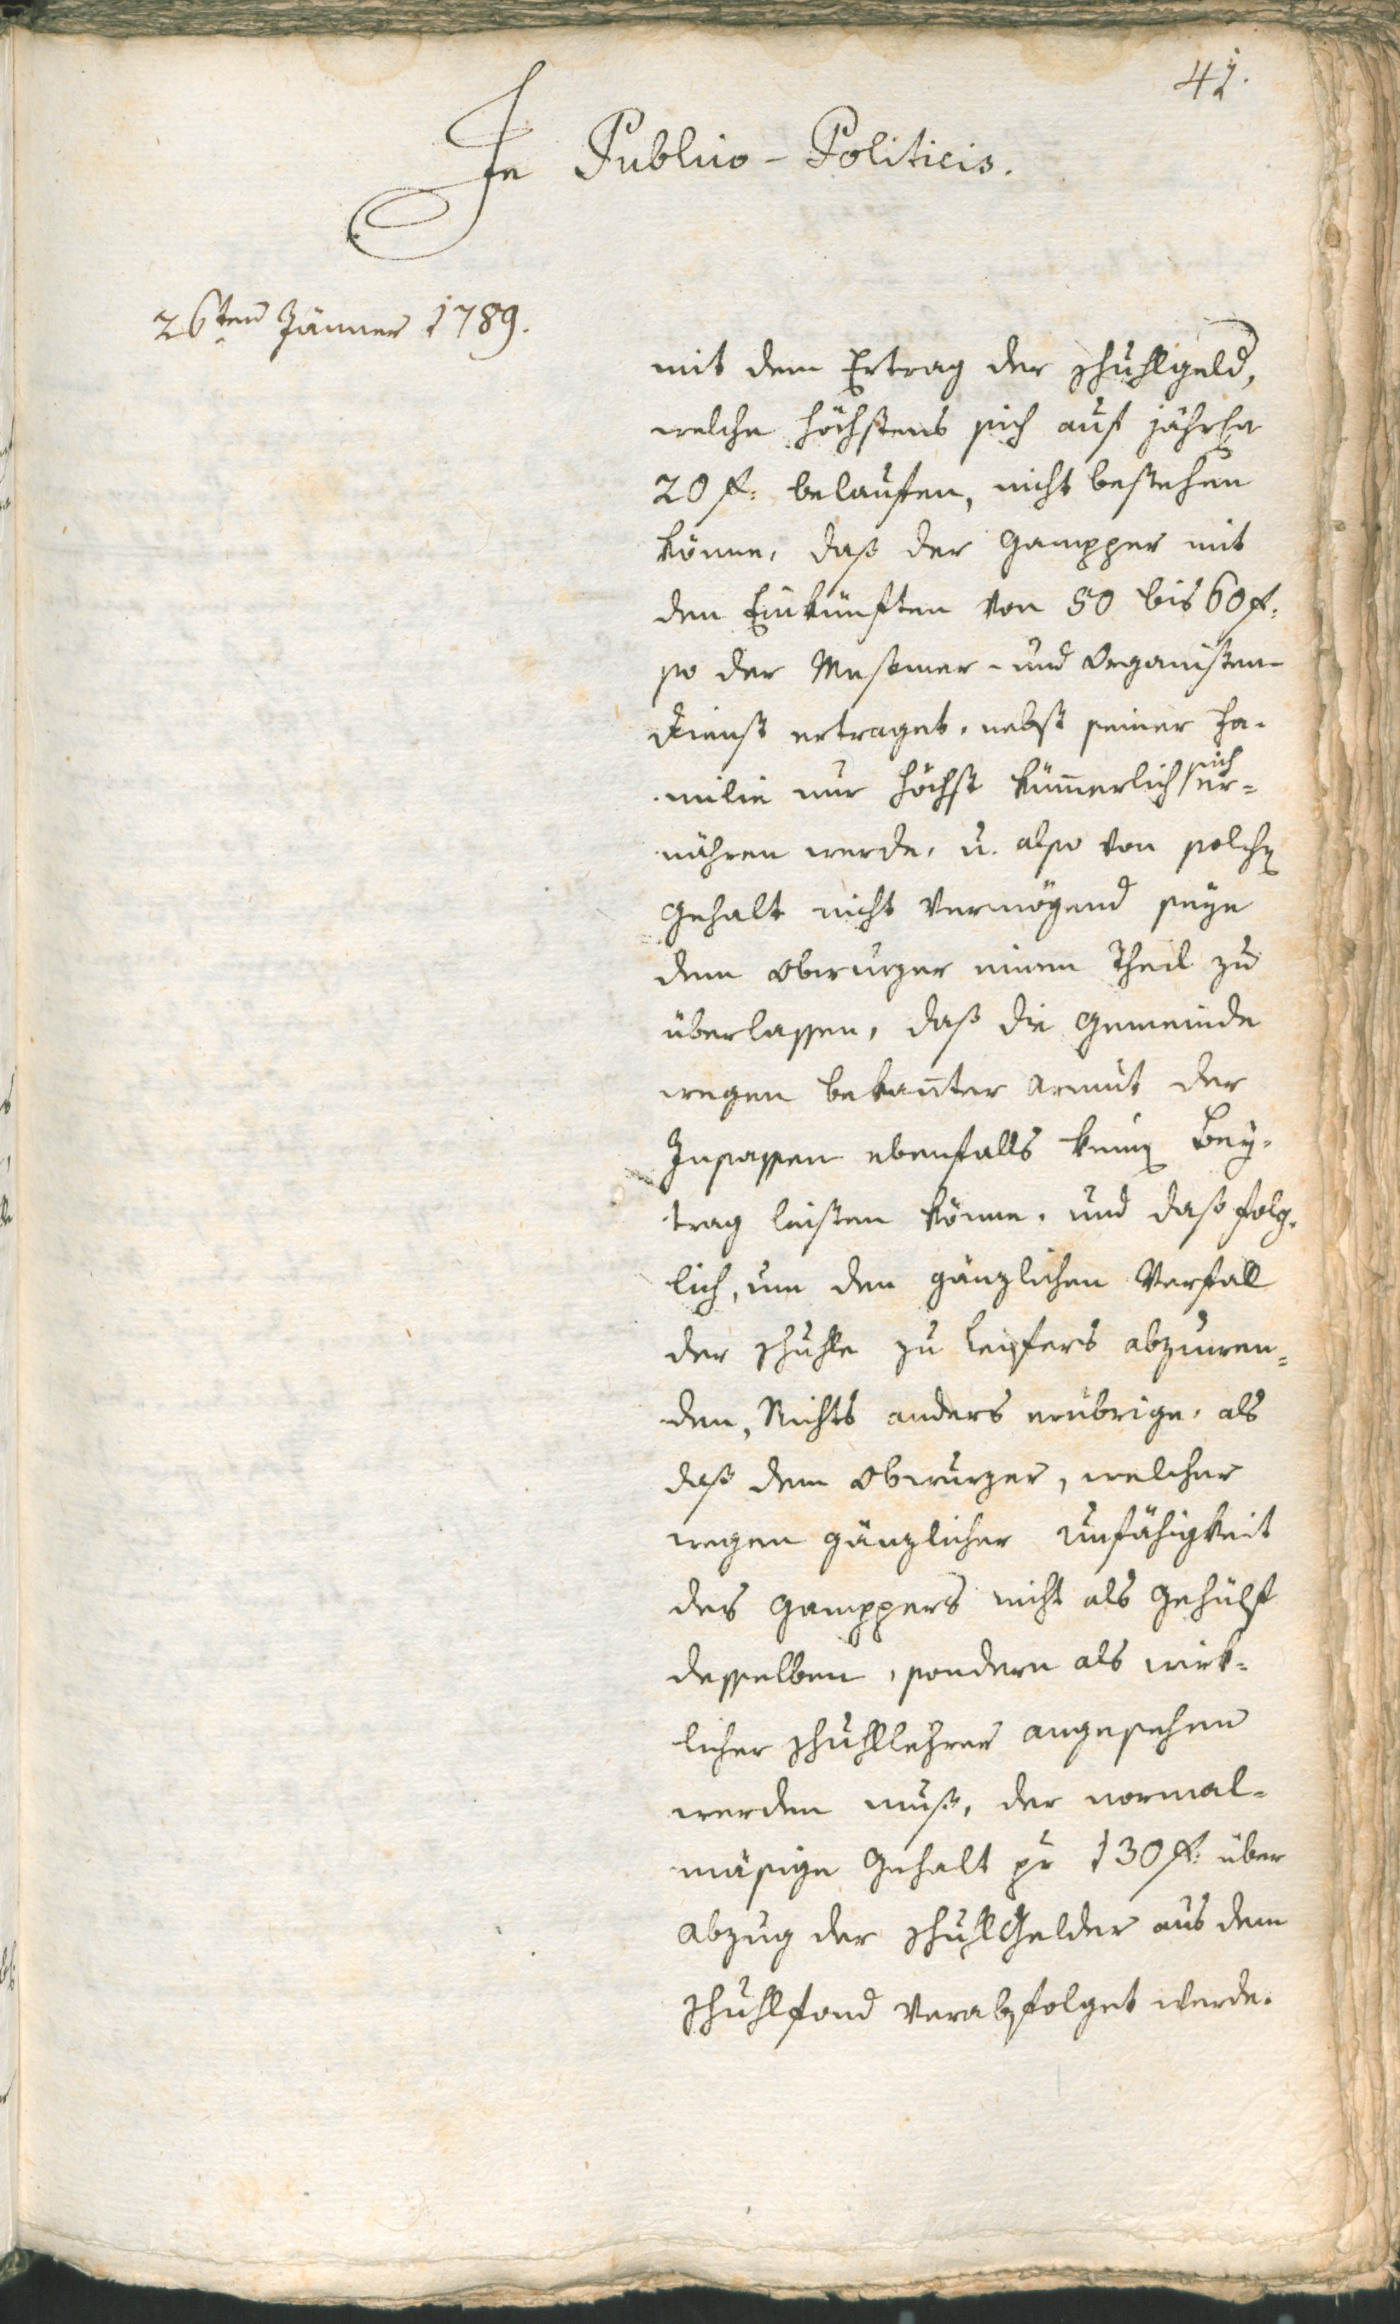 41.
In Publico-Politicis.
26ten Jänner 1789.
mit dem Ertrag der Schuhlgeld,
welche höchstens sich auf jährh
20 f: belaufen, nicht bestehen
könne, daß der Gampper mit
den Einkünften von 50 bis 60 f:
so der Messmer- und Organisten-
dienst ertraget, nebst seiner Fa-
milie nur höchst kümerlich sich er-
nähren werde, u. also von solch
Gehalt nicht vermögend seye
dem Obwurzer einen Theil zu
überlassen, daß die Gemeinde
wegen bekanter Armut der
Insassen ebenfalls kein Bey-
trag leisten könne, und daß folg-
lich, um den gänzlichen Verfall
der Schuhle zu Leifers abzuwen-
den, Nichts anders erübrige, als
daß dem Obwurzer, welcher
wegen gänzlicher Unfähigkeit
des Gamppers nicht als Gehülf
desselben, sondern als wirk-
licher Schuhllehrer angesehen
werden muß, der normal-
mäsige Gehalt pr 130 f: über
Abzug der Schuhlgelder aus dem
Schuhlfond verabfolget werde.